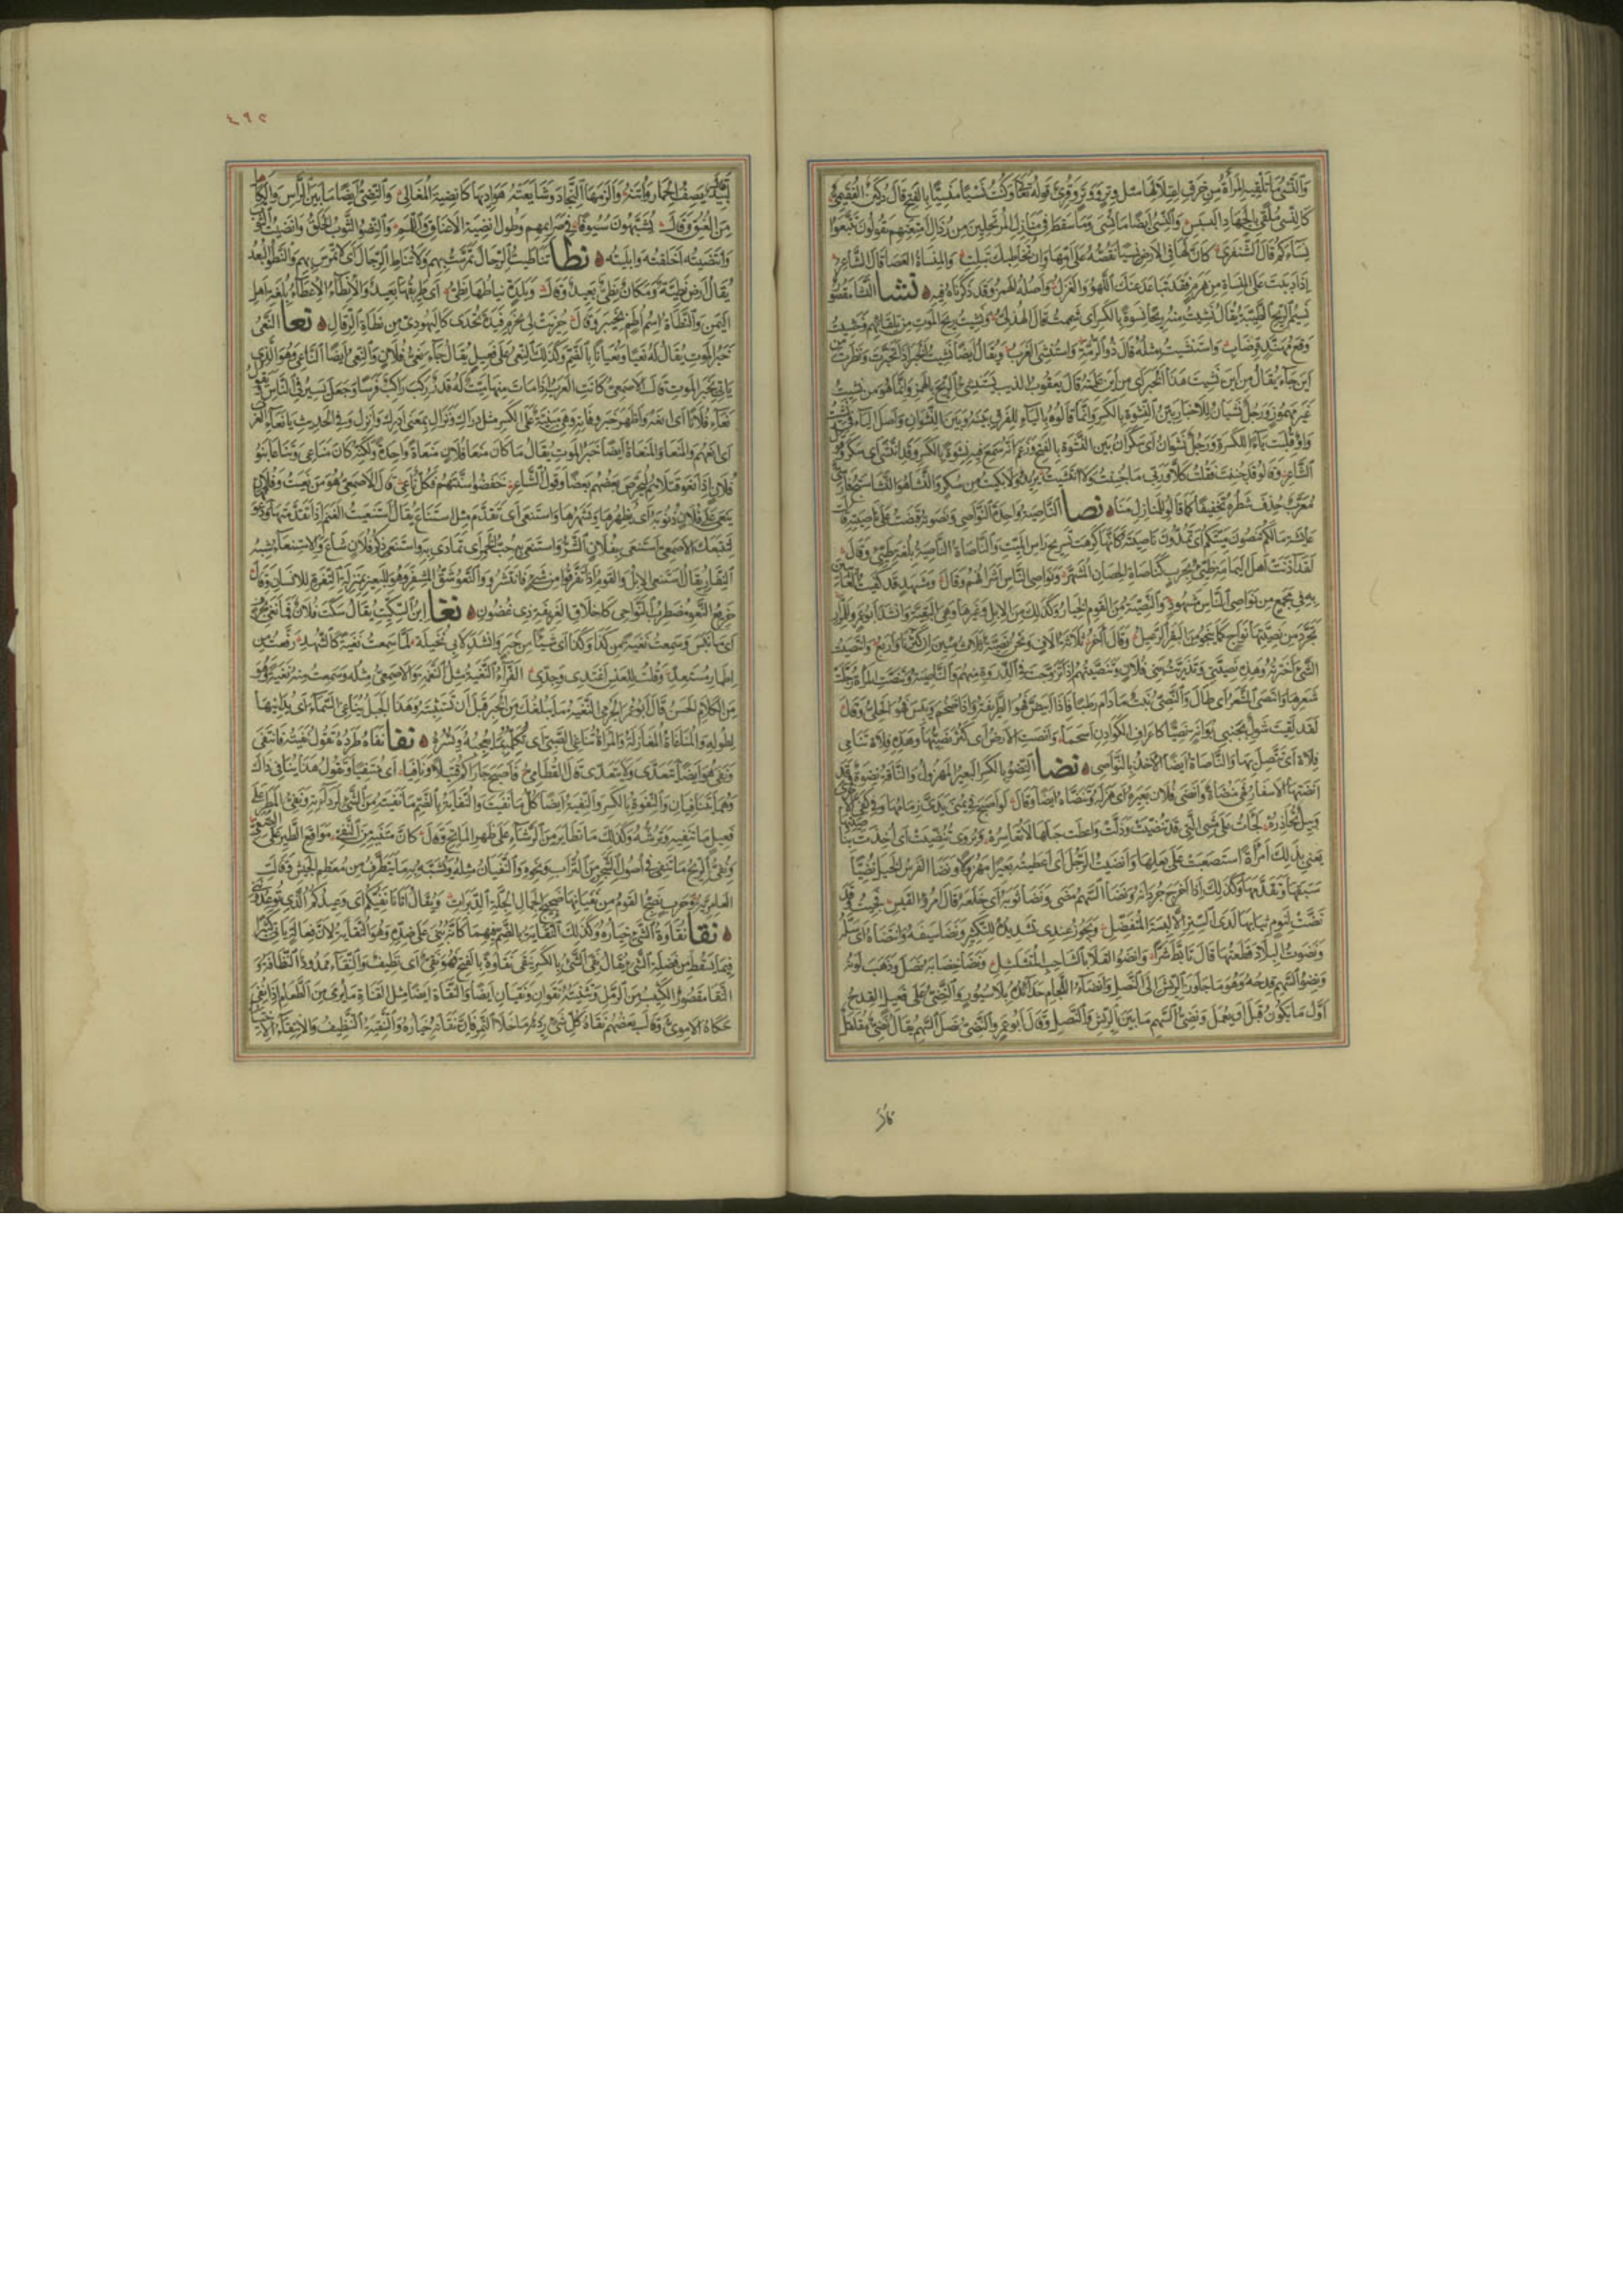 والنسى ما تلقيه المرأة من خرق اعتلالها مثل وتر ووتر وقرئ قوله تعالى وكنت نسيا منسيا بالفتح قال دكين الفقيمى
كالنسى ملقى بالجهاد البسبس والنسى ايضا ما نسى وما سقط فى منازل المرتحلين من رذال امتعتهم يقولون تتبعوا
نساءكم قال الشنفرى كأن لها فى الارض نسيا تقصه على امها وان تخاطبك تبلت والمنساة العصا قال الشاعر
اذا دببت على المنساة من هرم فقد تباعد عنك اللهو والغزل واصله الهمز وقد ذكرناه فيه نشا النشا مقصور
نسيم الريح الطيبة يقال نشيت منه ريحا نشوة بالكسر اى شممت قال الهذلى ونشيت ريح الموت من تلقائهم وخشيت
وقع مهند قرضاب واستنشيت مثله قال ذو الرمة واستنشى الغرب ويقال ايضا نشيت الخبر اذا تخبرت ونظرت من
اين جاء يقال من اين نشيت هذا الخبر اى من اين علمته قال يعقوب الذئب يستنشئ الريح بالهمز وانما هو من نشيت
غير مهموز ورجل نشيان للاخبار بين النشوة بالكسر وانما قالوه بالياء للفرق بينه وبين النشوان واصل الياء فى نشيت
واو قلبت ياء للكسرة ورجل نشوان اى سكران بين النشوة بالفتح وزعم انه سمع فيه نشوة بالكسر وقد انتشى اى سكر وقول
الشاعر وقالوا قد جننت فقلت كلا وربى ما جننت ولا انتشيت يريد ولا بكيت من سكر والنشا هو النشاستج فارسى
معرب حذف شطره تخفيفا كما قالوا للمنازل منا نصا الناصية واحدة النواصى ونصوته قبضت على ناصيته قالت
عائشة ما لكم تنصون ميتكم اى تمدون ناصيته كأنها كرهت تسريح راس الميت والناصاة الناصية بلغة طيئ وقال
لقد آذنت اهل اليمامة طيئ بحرب كناصاة الحصان المشهر ونواصى الناس اشرافهم وقال ومشهد قد كفيت الغائبين
به فى مجمع من نواصى الناس مشهود والنصية من القوم الخيار وكذلك من الابل وغيرها وهى البقية وانشد ابو عمرو للمرار
تجرد من نصيتها نواج كما ينجو من البقر الرعيل وقال آخر ثلاثة آلاف ونحن نصية ثلاث مئين ان كثرنا واربع وانتصيت
الشئ اخترته وهذه نصيتى وتذريت بنى فلان وتنصيتهم اذا تزوجت فى الذروة منهم والناصية وتنصت المرأة رجلت
شعرها وانتصى الشعر اى طال والنصى نبت ما دام رطبا فاذا ابيض فهو الطريفة واذا ضخم ويبس فهو الحلى وقال
لقد لقيت شول بجنبى بوانة نصيا كاعراف الكوادن اسحما وانصت الارض اى كثر نصيها وهذه فلاة تناصى
فلاة اى تتصل بها والناصاة ايضا الاخذ بالنواصى نضا النضو بالكسر البعير المهزول والناقة نضوة وقد
انضتها الاسفار فهى منضاة وانضى فلان بعيره اى هزله وتنضاه ايضا وقال
يعنى بذلك امرأة استصعبت على بعلها وانضيت الرجل اى اعطيته بعيرا مهزولا ونضا الفرس الخيل نضيا
سبقها وتقدمها وكذلك اذا اخرج جردانه ونضا السهم مضى ونضا ثوبه اى خلعه قال امرؤ القيس فجئت وقد
نضت لنوم ثيابها لدى الستر الا لبسة المتفضل ويجوز عندى تشديده للتكثير ونضا سيفه وانتضاه اى سله
ونضوت البلاد قطعتها قال تابط شرا وانضو الفلا بالشاحب المتشلشل ونضا خضابه نصل وذهب لونه
ونضو السهم قدحه وهو ما جاوز الريش الى النصل وانضاء اللجام حدائده بلا سيور والنضى على فعيل القدح
اول ما يكون قبل ان يعمل ونضى السهم ما بين الريش والنصل وقال ابو عمرو النضى نصل السهم يقال نضى مفلل
٤٩٢
لبيد يصف الحمار واتنه والزمها النجاد وشايعته هواديها كانضية المغالى والنضى ايضا ما بين الراس والكاهل
من العنق وقال يشبهون سيوفا فى صرائمهم وطول انضية الاعناق واللمم والنضو الثوب الخلق وانضيت الثوب
وانتضيته اخلقته وابليته نطا تناطيت الرجال تمرست بهم ولا تناط الرجال اى لا تمرس بهم والنطو البعد
يقال ارض نطية ومكان نطى بعيد وقال وبلدة نياطها نطى اى طريقها بعيد والانطاء الاعطاء بلغة اهل
اليمن والنطاة اسم اطم بخيبر وقال حزيت لى بحزم فيدة تحدى كاليهودى من نطاة الرقال نعا النعى
خبر الموت يقال له نعيا ونعيانا بالضم وكذلك النعى على فعيل يقال جاء نعى فلان والنعى ايضا الناعى وهو الذى
ياتى بخبر الموت قال الاصمعى كانت العرب اذا مات منها ميت له قدر ركب راكب فرسا وجعل يسير فى الناس ويقول
نعاء فلانا اى انعه واظهر خبر وفاته وهى مبنية على الكسر مثل دراك ونزال بمعنى ادرك وانزل وفى الحديث يا نعاء العرب
اى انعهم والمنعا والمنعاة ايضا خبر الموت يقال ما كان منعا فلان منعاة واحدة ولكنه كان مناعى وتناعا بنو
فلان اذا نعوا قتلاهم ليحرض بعضهم بعضا وقول الشاعر خفضوا اسنتهم فكل ناعى قال الاصمعى هو من نعيت وفلان
ينعى على فلان ذنوبه اى يظهرها ويشهرها واستنعى اى تقدم مثل استناع يقال استنعيت الغنم اذا تقدمتها ودعوتها
لتتبعك الاصمعى استنعى بفلان الشر واستنعى به حب الخمر اى تمادى به واستنعى ذكر فلان شاع والاستنعاء شبه
النفار يقال استنعى الابل والقوم اذا تفرقوا من شئ فانتشروا والنعو شق المشفر وهو للبعير بمنزلة التفرة للانسان وقال
خريع النعو مضطرب النواحى كاخلاق الغريفة ذى غضون نغا ابن السكيت يقال سكت فلان فما نغى بحرف
اى ما نبس وسمعت نغية من كذا وكذا اى شيئا من خبر وانشد لابى نخيلة لما سمعت نغية كالشهد رفعت من
اطمار مستعد وقلت للعنس اغتدى وجدى الفراء النغية مثل النغمة والاصمعى مثله وسمعت منه نغية وهو
من الكلام الحسن قال ابو عمر الجرمى النغية ما يبلغك من الخبر قبل ان تستبينه وهذا الجبل يناغى السماء اى يدانيها
لطوله والمناغاة المغازلة والمراة تناغى الصبى اى تكلمه بما يعجبه ويسره نفا نفاه طرده تقول نفيته فانتفى
ونفى هو ايضا يتعدى ولا يتعدى قال القطامى فاصبح جاراكم قتيلا ونافيا اى منتفيا وتقول هذا ينافى ذاك
وهما يتنافيان والنفوة بالكسر والنفية ايضا كل ما نفيت والنفاية بالضم ما نفيته من الشئ لرداءته ونفى المطر على
فعيل ما تنفيه وترشه وكذلك ما تطاير من الرشاء على ظهر الماتح وقال كأن متنيه من النفى مواقع الطير على الصفى
ونفى الريح ما تنفى فى اصول الشجر من التراب ونحوه والنفيان مثله ويشبه به ما يتطرف من معظم الجيش وقالت
العامرية وحرب يضج القوم من نفيانها ضجيج الجمال الجلة الدبرات ويقال اتانا نفيكم اى وعيدكم الذى توعدوننى
نقا نقاوة الشئ خياره وكذلك النقاية بالضم فيهما كانه بنى على ضده وهو النفاية لان فعالة ياتى كثيرا
فيما يسقط من فضلة الشئ يقال نقى الشئ بالكسر ينقى نقاوة بالفتح فهو نقى اى نظيف والنقاء ممدود النظافة و
النقا مقصور الكثيب من الرمل وتثنيته نقوان ونقيان ايضا والنقاة ايضا مثل القناة ما يرمى من الطعام اذا نقى
حكاه الاموى وقال بعضهم نقاة كل شئ رديه ما خلا التمر فان نقاته خياره والتنقية التنظيف والانتقاء الاختيار